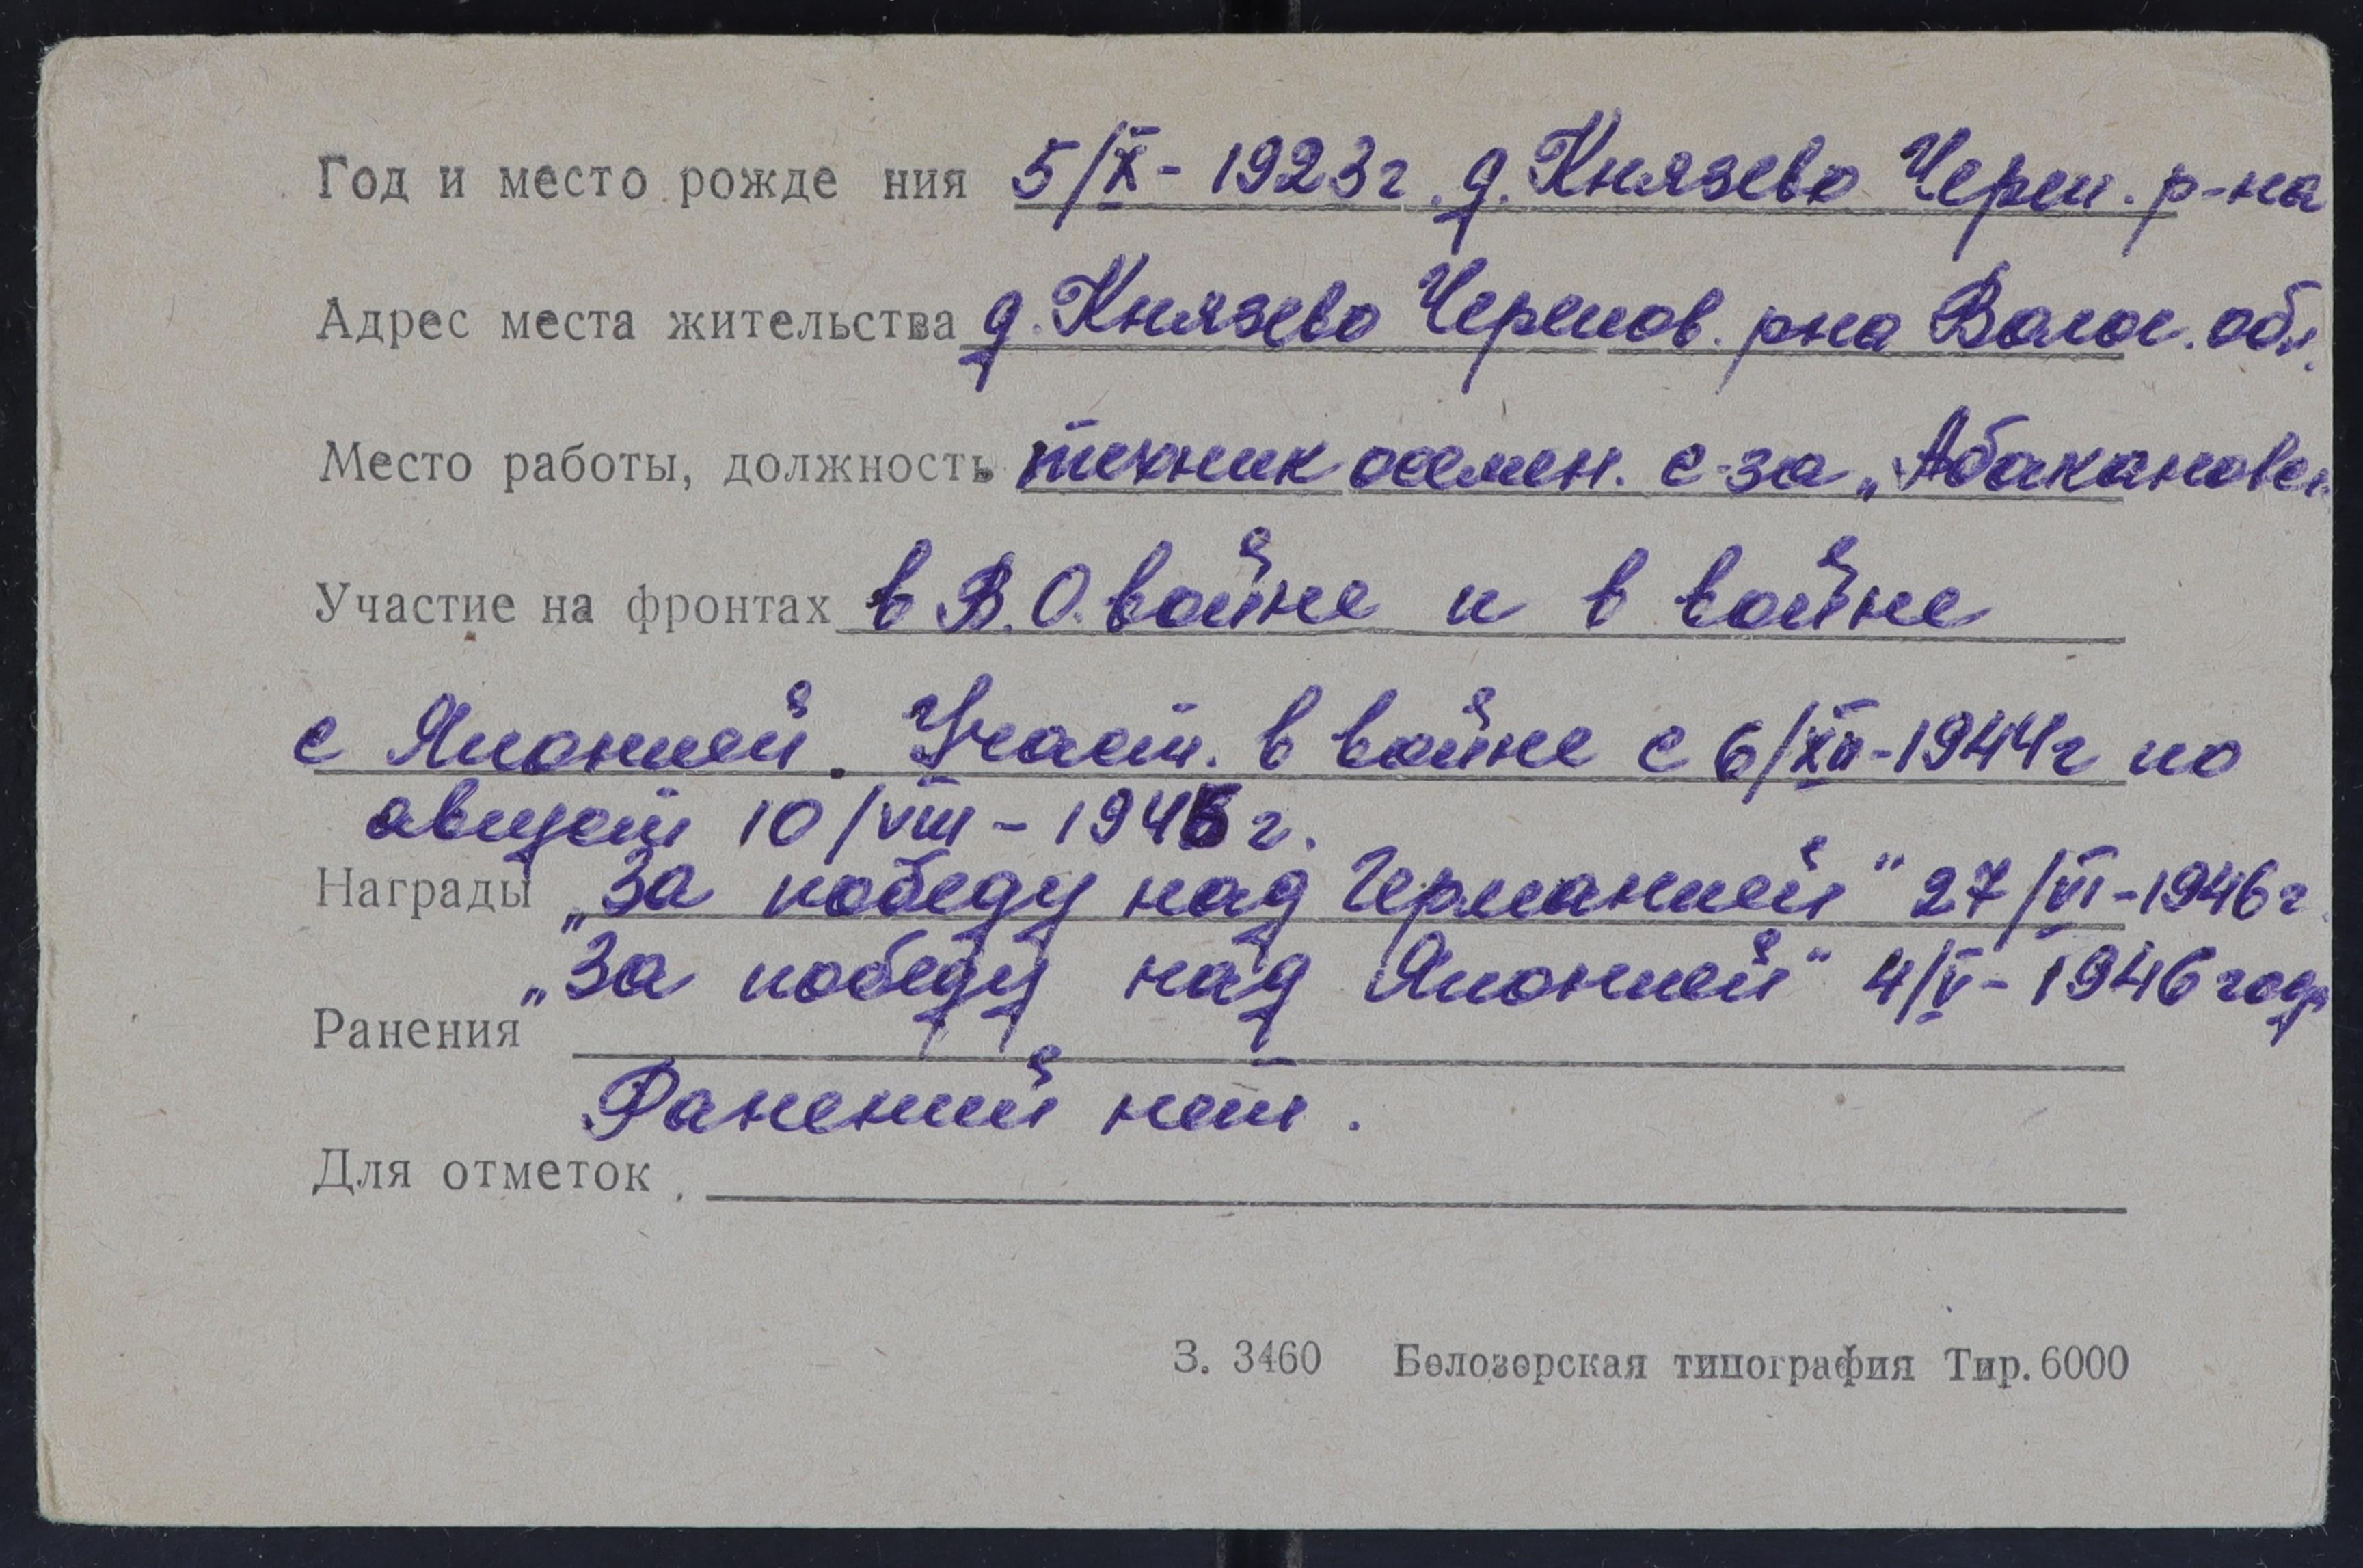 Год и место рожде ния 5/X - 1923 г. д. Князево Череп. р-на
Адрес места жительства д. Князево Черепов. рна Волог. обл.
Место работы, должность техник осемен. с-за „Абакановск
Участие на фронтах в В. О. войне и в войне
с Японией. Участ. в войне с 6/XII - 1944 г по
август 10/VIII - 1945 г.
Награды „За победу над Германией" 27/VI - 1946 г.
„За победу над Японией" 4/V - 1946 год
Ранения
Ранений нет.
Для отметок
З. 3460 Белозерская типография Тир. 6000